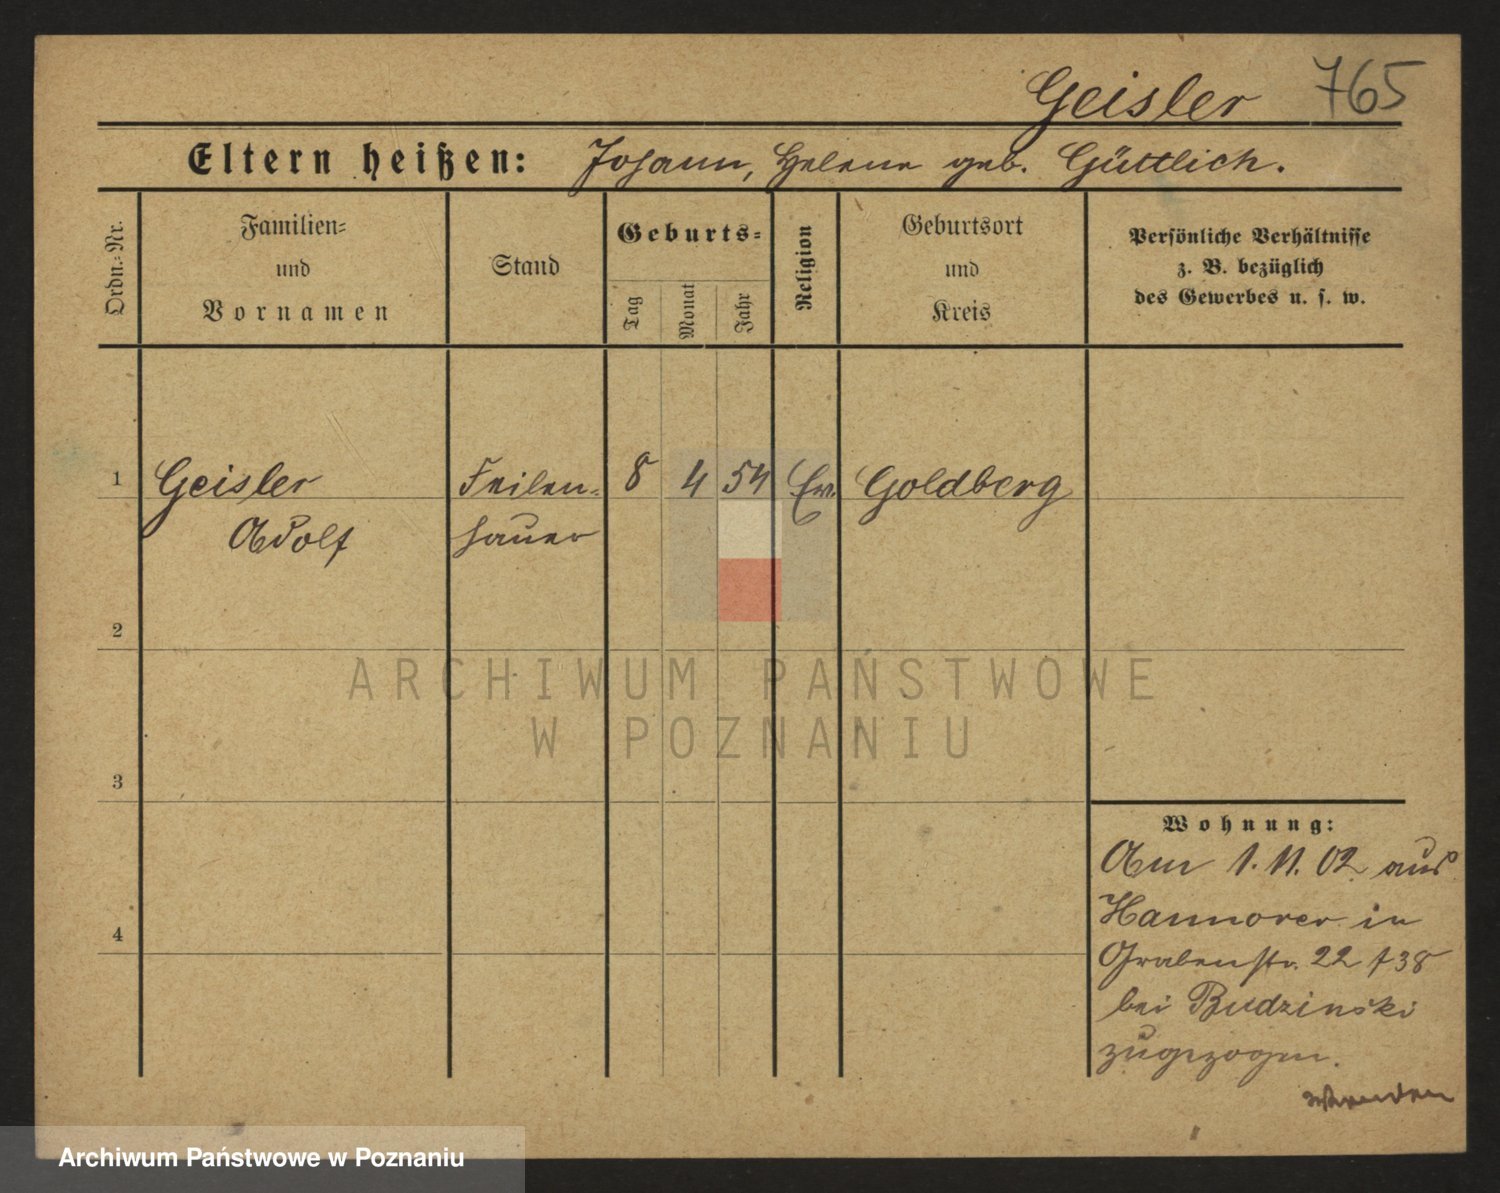 Geisler 765
Eltern heißen: Johann, Helene geb. Güttlich.
Ordn.-Nr.
Familien-
und
Vornamen
Stand
Geburts-
Tag
Monat
Jahr
Religion
Geburtsort
und
Kreis
Persönliche Verhältnisse
z. B. bezüglich
des Gewerbes u. s. w.
1 Geisler Feilen- 8 4 54 Ev. Goldberg
Adolf hauer
2
ARCHIWUM PAŃSTWOWE
W POZNANIU
3
Wohnung:
Am 1.11.02 aus
Hannover in
4
Grabenstr. 22 f 38
bei Budzinski
zugezogen.
wenden
Archiwum Państwowe w Poznaniu